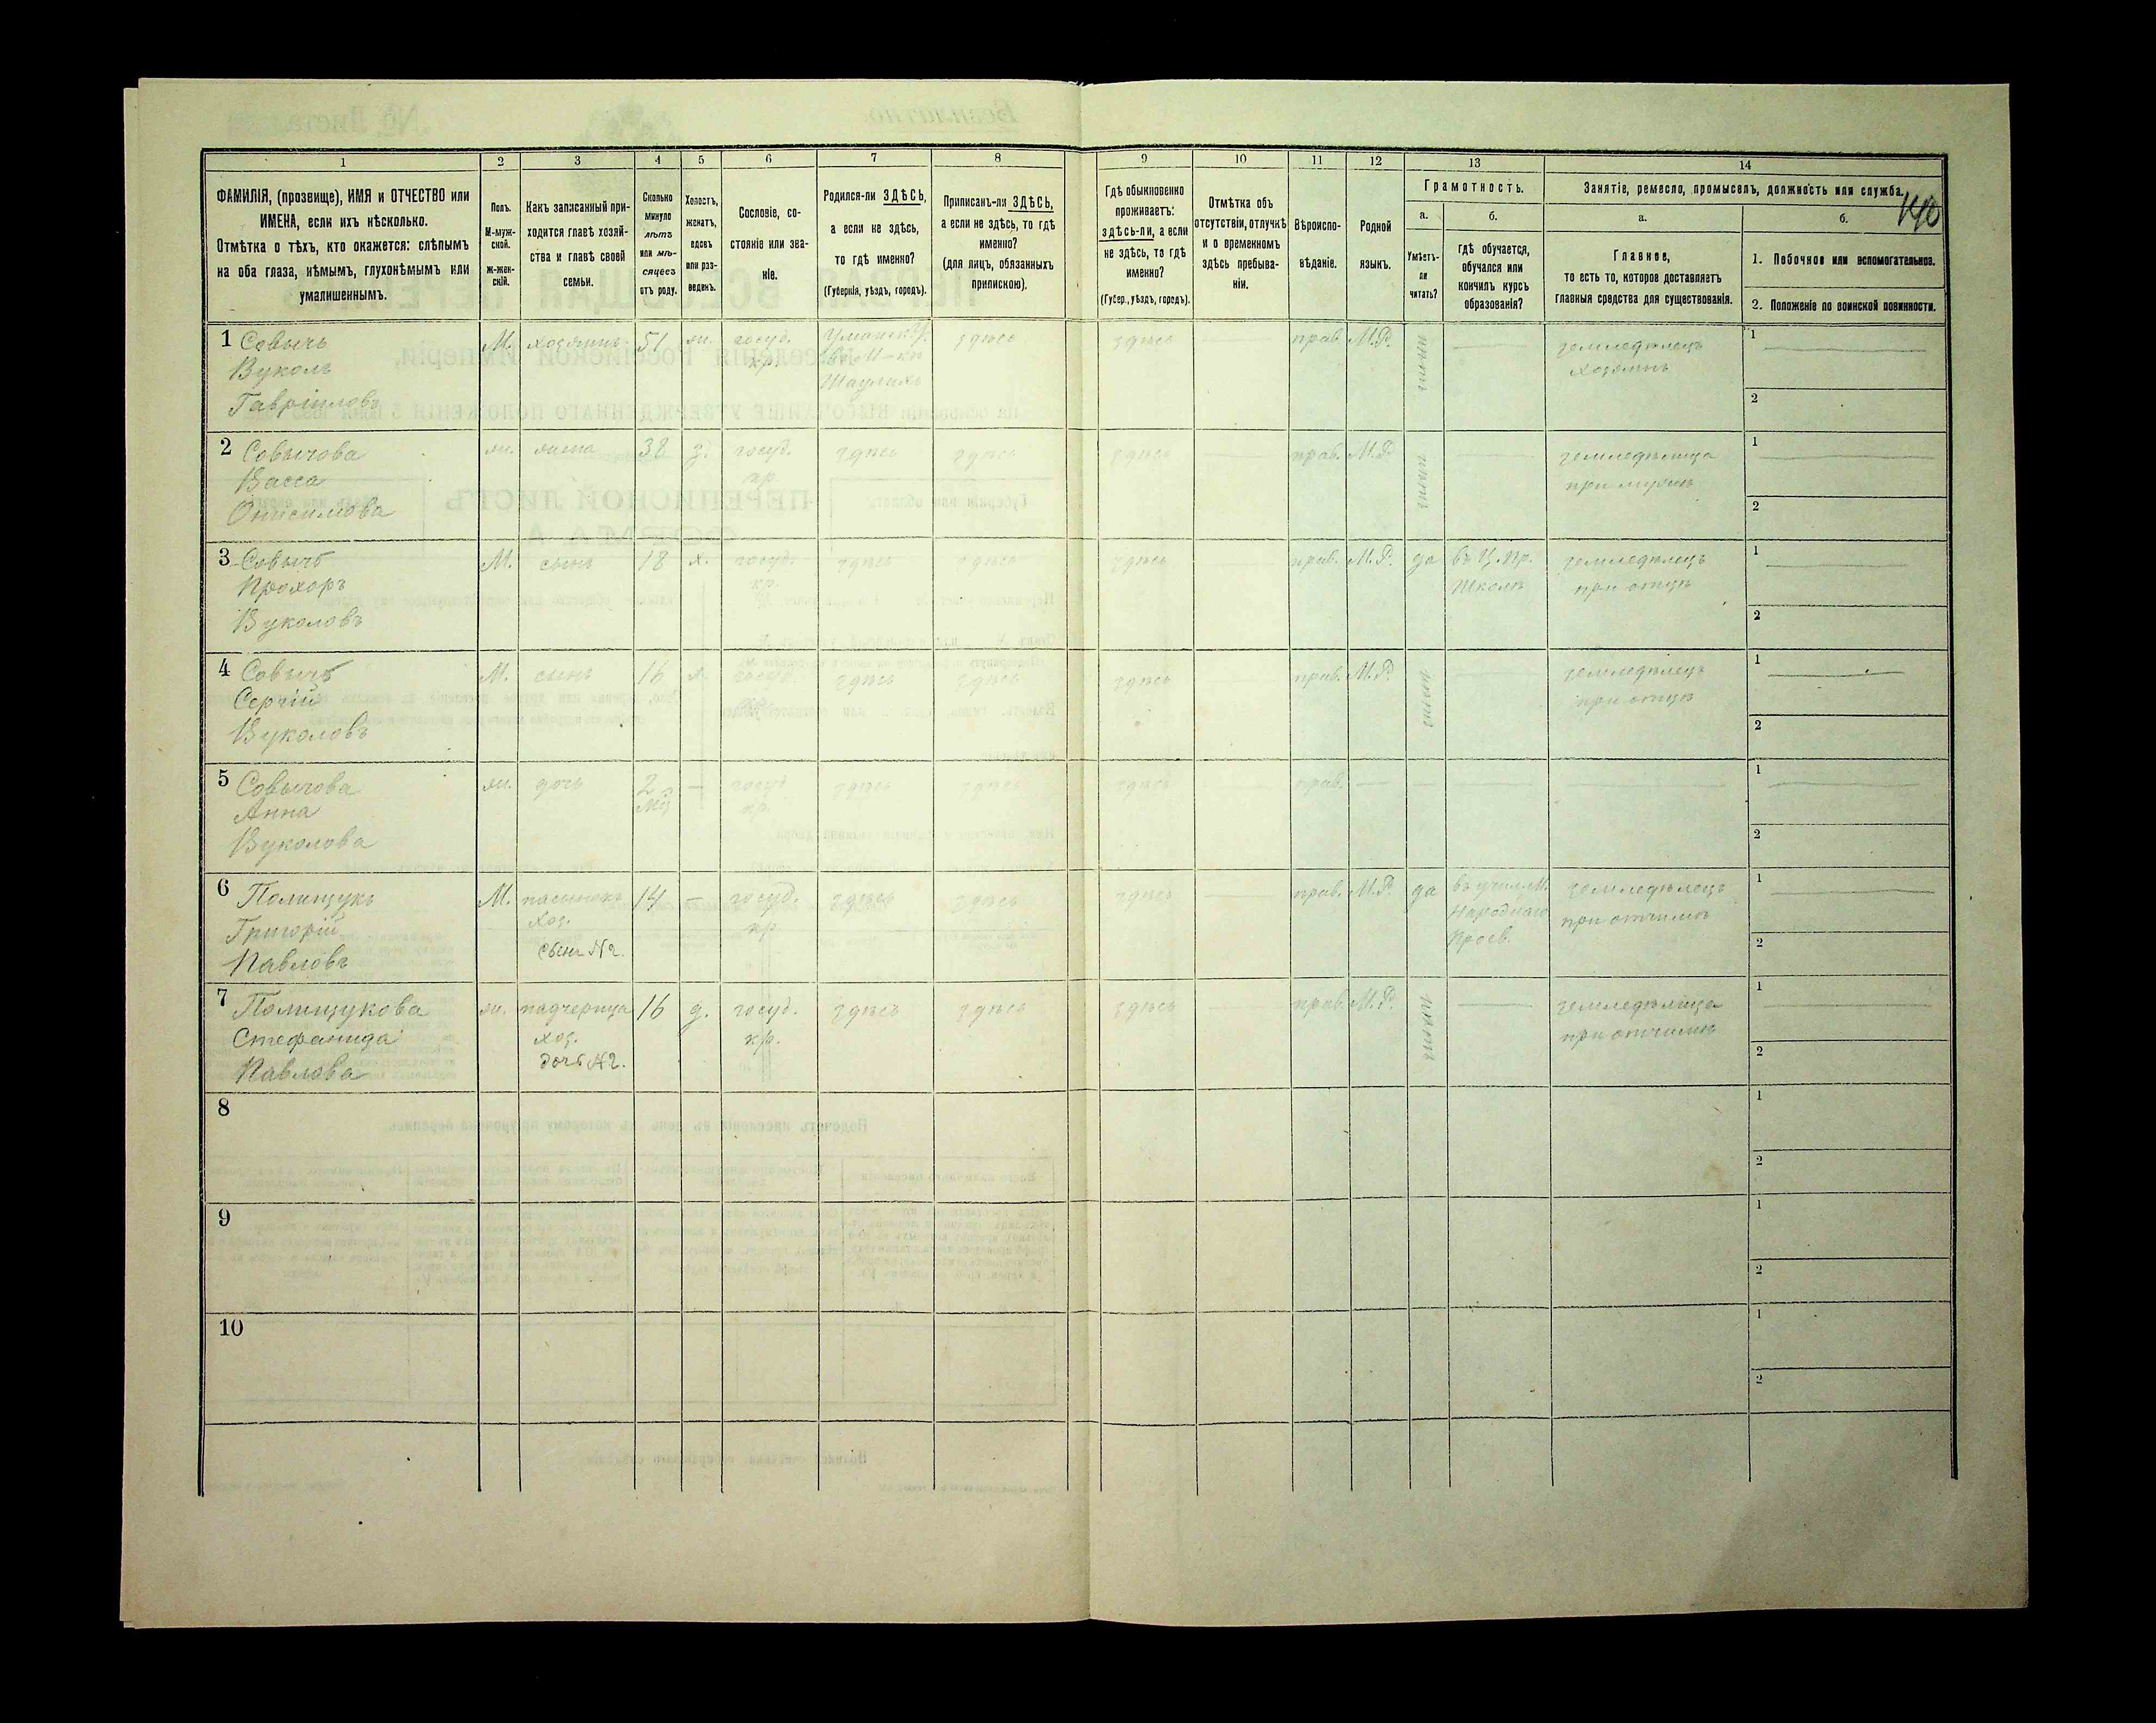 140
1 2 3 4 5 6 7 8 9 10 11 12 13 14
ФАМИЛІЯ, (прозвище), ИМЯ и ОТЧЕСТВО или
ИМЕНА, если ихъ нѣсколько.
Отмѣтка о тѣхъ, кто окажется: слѣпымъ
на оба глаза, нѣмымъ, глухонѣмымъ или
умалишеннымъ.
Полъ.
М-муж-
ской.
Ж-жен-
скій.
Какъ записанный при-
ходится главѣ хозяй-
ства и главѣ своей
семьи.
Сколько
минуло
лѣтъ
или мѣ-
сяцевъ
отъ роду.
Холостъ,
женатъ,
вдовъ
или раз-
веденъ.
Сословіе, со-
стояніе или зва-
ніе.
Родился-ли ЗДѢСЬ,
а если не здѣсь,
то гдѣ именно?
(Губернія, уѣздъ, городъ).
Приписанъ-ли ЗДѢСЬ,
а если не здѣсь, то гдѣ
именно?
(для лицъ, обязанныхъ
припискою).
Гдѣ обыкновенно
проживаетъ:
здѣсь-ли, а если
не здѣсь, то гдѣ
именно?
(Губер., уѣздъ, городъ).
Отмѣтка объ
отсутствіи, отлучкѣ
и о временномъ
здѣсь пребыва-
ніи.
Вѣроиспо-
вѣданіе.
Родной
языкъ.
Грамотность.
а.
Умѣетъ-
ли
читать?
б.
гдѣ обучается,
обучался или
кончилъ курсъ
образованія?
Занятіе, ремесло, промыселъ, должность или служба.
а.
Главное,
то есть то, которое доставляетъ
главныя средства для существованія.
б.
1. Побочное или вспомогательное.
2. Положеніе по воинской повинности.
1 Совычъ
Вуколъ
Гавріиловъ
М.
хозяинъ
51
ж.
госуд.
кр.
Шаулиха
здѣсь
здѣсь
прав.
М.Р.
нѣтъ
земледѣлецъ
хозяинъ
1
2
2 Совычова
Васса
Онисимова
ж.
жена
38
з.
госуд.
кр
здѣсь
здѣсь
здѣсь
прав.
М.Р.
нѣтъ
земледѣлица
при мужѣ
1
2
3 Совычъ
Прохоръ
Вуколовъ
М.
сынъ
18
х.
госуд.
кр.
здѣсь
здѣсь
здѣсь
прав.
М.Р.
да
въ Ц. Пр.
Школѣ
земледѣлецъ
при отцѣ
1
2
4 Совычъ
Сергій
Вуколовъ
М.
сынъ
16
х.
госуд.
кр.
здѣсь
здѣсь
здѣсь
прав.
М.Р.
нѣтъ
земледѣлецъ
при отцѣ
1
2
5 Совычова
Анна
Вуколова
ж.
дочь
2
Мц
—
госуд
кр.
здѣсь
здѣсь
здѣсь
прав.
1
2
6 Полищукъ
Григорій
Павловъ
М.
пасынокъ
хоз.
сынъ №2.
14
—
госуд.
кр
здѣсь
здѣсь
здѣсь
прав.
М.Р.
да
въ учил. М.
Народнаго
Просв.
земледѣлецъ
при отчимѣ
1
2
7 Полищукова
Стефанида
Павлова
ж.
падчерица
хоз.
дочь №2.
16
д.
госуд.
кр.
здѣсь
здѣсь
здѣсь
прав.
М.Р.
нѣтъ
земледѣлица
при отчимѣ
1
2
8
1
2
9
1
2
10
1
2